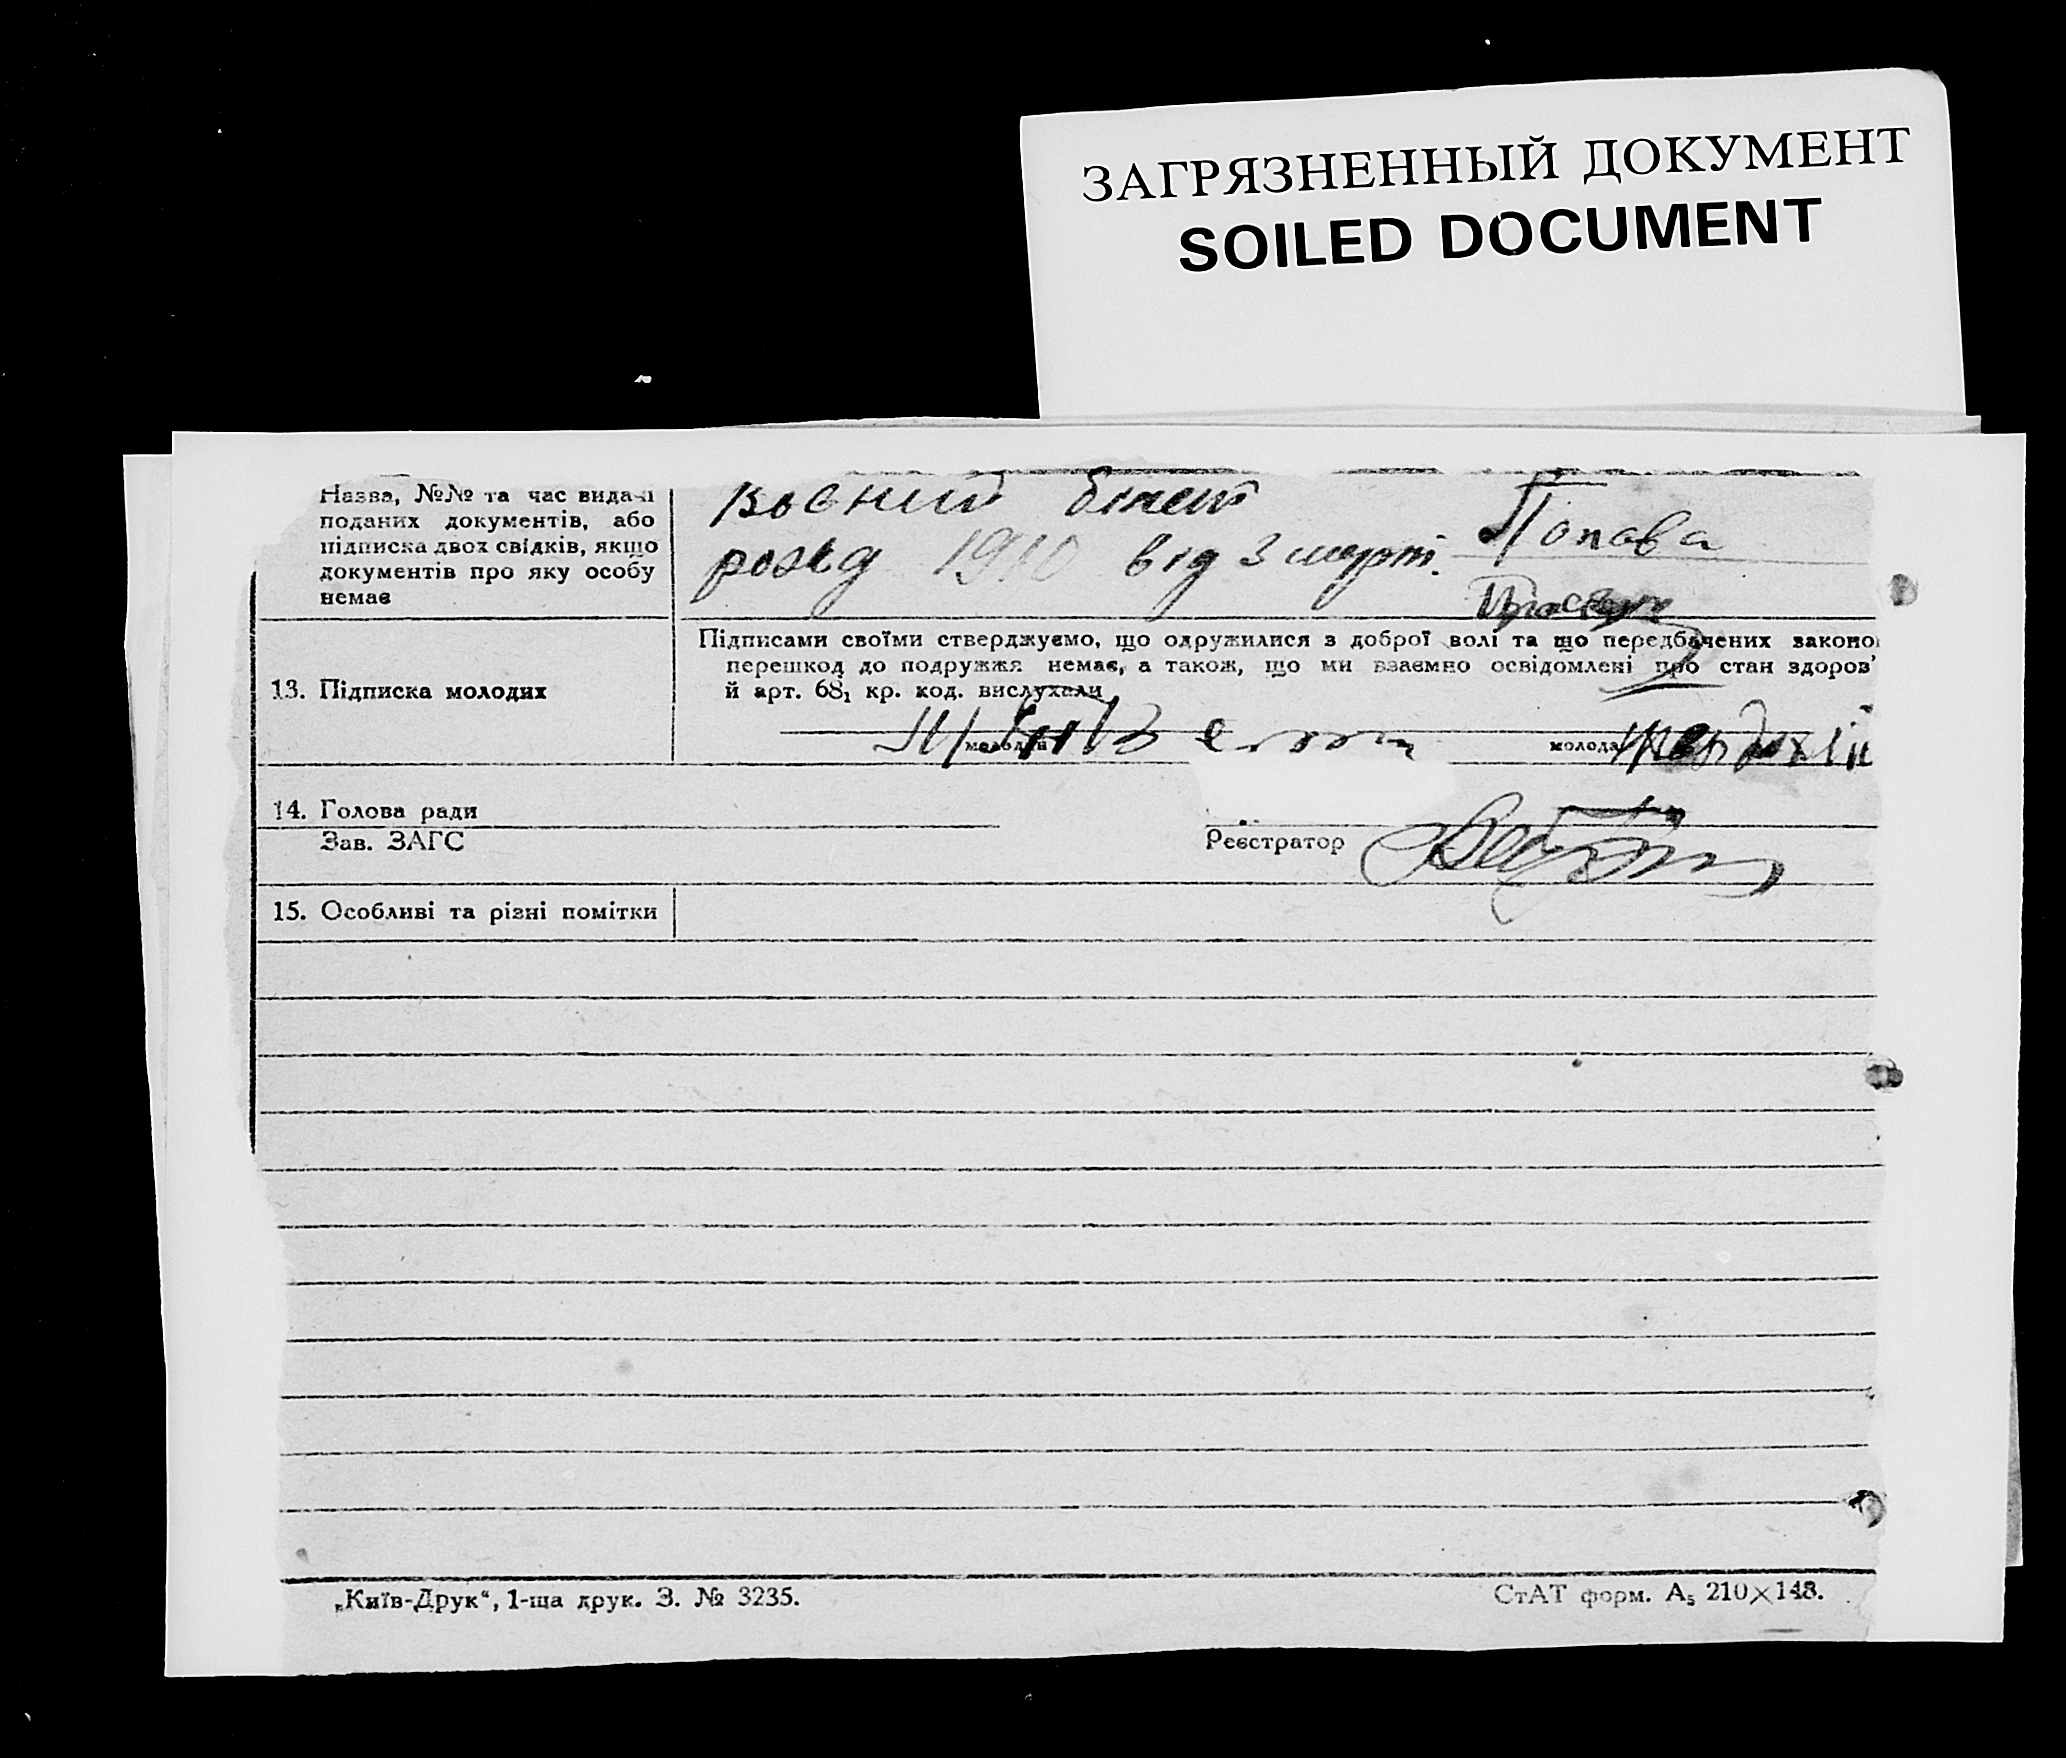 ЗАГРЯЗНЕННЫЙ ДОКУМЕНТ
SOILED DOCUMENT
Назва, №№ та час видачі
поданих документів, або
підписка двох свідків, якщо
документів про яку особу
немає
Воєний білет
1910 від 3
Попова
13. Підписка молодих
Підписами своїми стверджуємо, що одружилися з доброї волі та що передбачених законо
перешкод до подружжя немає, а також, що ми взаємно освідомлені про стан здоров'
й арт. 68₁ кр. код. вислухали
молодий
молода
14. Голова ради
Зав. ЗАГС
Реєстратор
15. Особливі та різні помітки
„Київ-Друк“, 1-ша друк. З. № 3235.
СтАТ форм. А₅ 210×148.